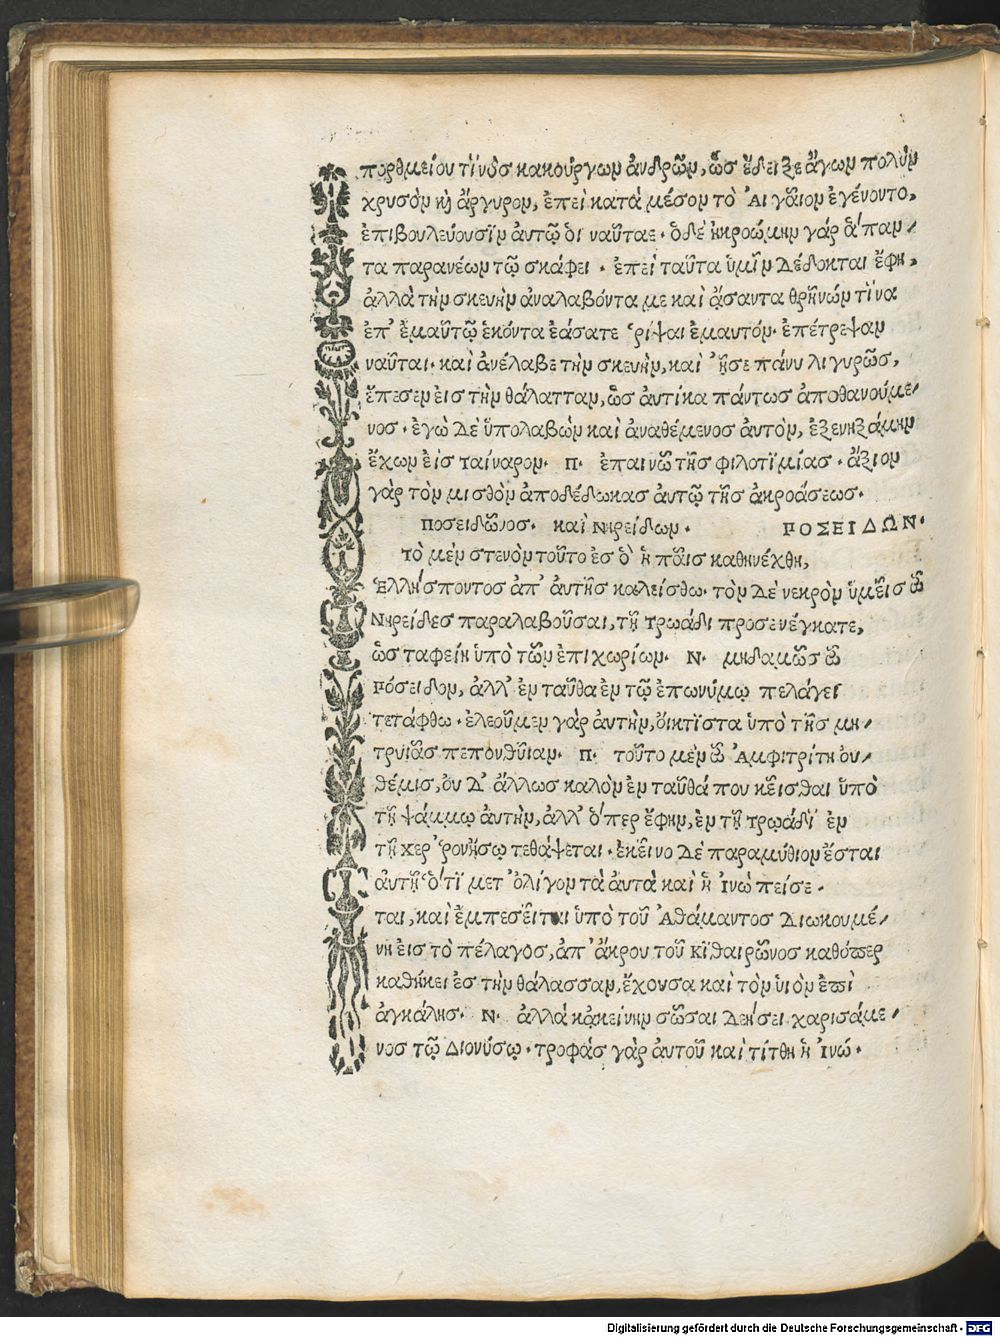 πορθμείου τινὸσ κακούργων ἀνδρῶν, ὧσ ἔδειξε ἄγων πολὺν
χρυσὸν κỳ ἄργυρον, ἐπεὶ κατὰ μέσον τὸ Ἀιγᾶιον ἐγένοντο,
ἐπιβουλεύουσϊν ἀυτῷ ὁι ναῦται· ὁδὲ ἠκροώμην γὰρ ἅπαν/
τα παρανέων τῷ σκάφει · ἐπεὶ ταῦτα ὑμῖν Δέδοκται ἔφη,
ἀλλὰ τὴν σκευὴν ἀναλαβόντα με καὶ ᾄσαντα θρῆνών τϊνα
ἐπ' ἐμαυτῷ ἑκόντα ἐάσατε ῥίψαι ἐμαυτόν· ἐπέτρεψαν
ναῦται· καὶ ἀνέλαβε τὴν σκευὴν, καὶ ᾖσε πάνυ λιγυρῶσ,
ἔπεσεν ἐισ τὴν θάλατταν, ὧσ ἀυτίκα πάντωσ ἀποθανούμε/
νοσ · ἐγὼ Δὲ ὑπολαβὼν καὶ ἀναθέμενοσ ἀυτὸν, ἐξενηξάμην
ἔχων ἐισ ταίναρον· Π· ἐπαινῶ τῆσ φιλοτϊμίασ · ἄξιον
γὰρ τὸν μισθὸν ἀποδέδωκασ ἀυτῷ τῆσ ἀκροάσεωσ·
Ποσειδῶνοσ· καὶ Νηρείδων · ΡΟΣΕΙΔΩΝ·
τὸ μὲν στενὸν τοῦτο ἐσ ὃ ἡ πᾶισ καθηνέχθη,
Ἑλλήσποντοσ ἀπ' ἀυτῆσ καλείσθω· τὸν Δὲ νεκρὸν ὑμεῖσ ὦ
Νηρεΐδεσ παραλαβοῦσαι, τῇ τρωάδι προσενέγκατε,
ὧσ ταφείη ὑπὸ τῶν ἐπιχωρίων· Ν· μηδαμῶσ ὦ
ρόσειδον, ἀλλ' ἐν ταῦθα ἐν τῷ ἐπωνύμῳ πελάγει
τετάφθω · ἐλεοῦμεν γὰρ ἀυτὴν, ὄικτϊστα ὑπὸ τῆσ μη/
τρυιᾶσ πεπονθῦιαν· Π· τοῦτο μὲν ὦ Ἀμφιτρίτη ὀυ/
θέμισ, ὀυ Δ' ἄλλωσ καλὸν ἐν ταῦθά που κεῖσθαι ὑπὸ
τῇ ψάμμῳ ἀυτὴν, ἀλλ' ὅπερ ἔφην, ἐν τῇ τρῳάδϊ ἐν
τῇ χερρονήσῳ τεθάψεται · ἐκεῖνο Δὲ παραμύθιον ἔσται
ἀυτῇ ὅτϊ μετ' ὀλίγον τὰ ἀυτὰ καὶ ἡ Ἰνὼ πείσε ·
ται, καὶ ἐμπεσεῖται ὑπὸ τοῦ Ἀθάμαντοσ Διωκουμέ/
νη ἐισ τὸ πέλαγοσ, ἀπ' ἄκρου τοῦ Κιθαιρῶνοσ καθόπερ
καθήκει ἐσ τὴν θάλασσαν, ἔχουσα καὶ τὸν ὑιὸν ἐπὶ
ἀγκάλησ· Ν· ἀλλὰ κἀκείνην σῶσαι Δεήσει χαρισάμε/
νοσ τῷ Διονύσῳ · τροφὰσ γὰρ ἀυτοῦ καὶ τίτθη ἡ Ἰνώ ·
Digitalisierung gefördert durch die Deutsche Forschungsgemeinschaft - DFG